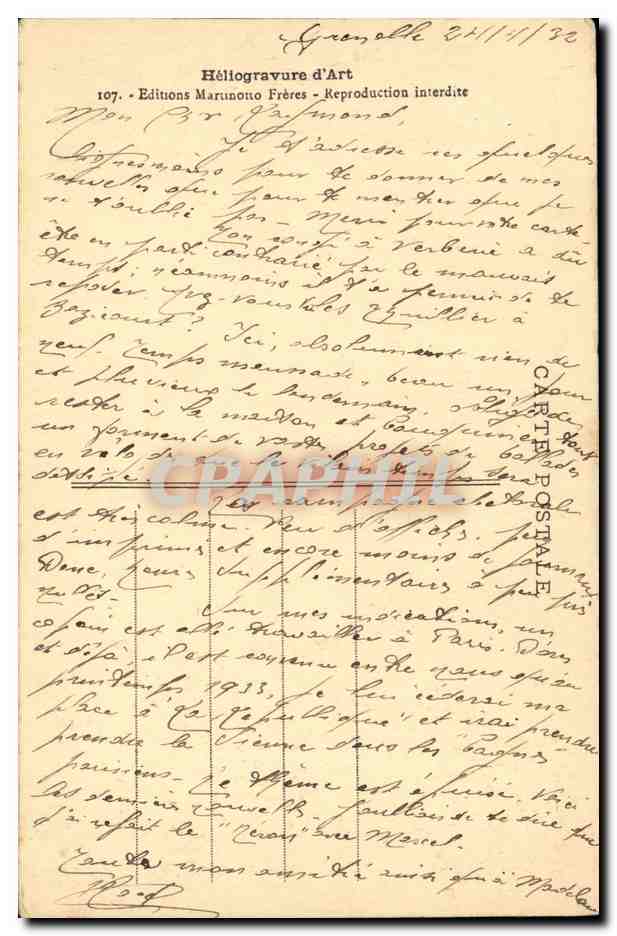 Grenoble 24/4/32
Héliogravure d'Art
107. - Editions Martinotto Frères - Reproduction interdite
Mon Cher Raymond,
Je t'adresse ces quelques
pour te donner de mes
nouvelles que pour te montrer que je
ne t'oublie pas - Merci pour votre carte.
Ton congé à a dû
être en parti contrarié par le mauvais
temps; néanmoins il t'a permis de te
reposer. à
Ici, absolument rien de
neuf. Temps maussade, beau un jour
et pluvieux le lendemain. tout
rester à la maison et bouquiner
un de vastes projets de ballades
en vélo
La campagne électorale
est très calme. Peu d'affiches, peu
d'imprimés et encore moins de journaux
Donc, heures supplémentaires à peu près
nulles.
Sur mes indications, un
copain est allé travailler à Paris. D'ores
et déjà, il est convenu entre nous qu'au
printemps 1933, je lui céderai ma
place à "La République" et irai prendre
prendre la sienne dans les "bagnes"
parisiens. Le thème est épuisé. Voici
les dernières nouvelles. J'oubliais de te dire que
j'ai refait le avec Marcel.
Toute mon amitié ainsi qu'à
CARTE POSTALE
CPARAMA